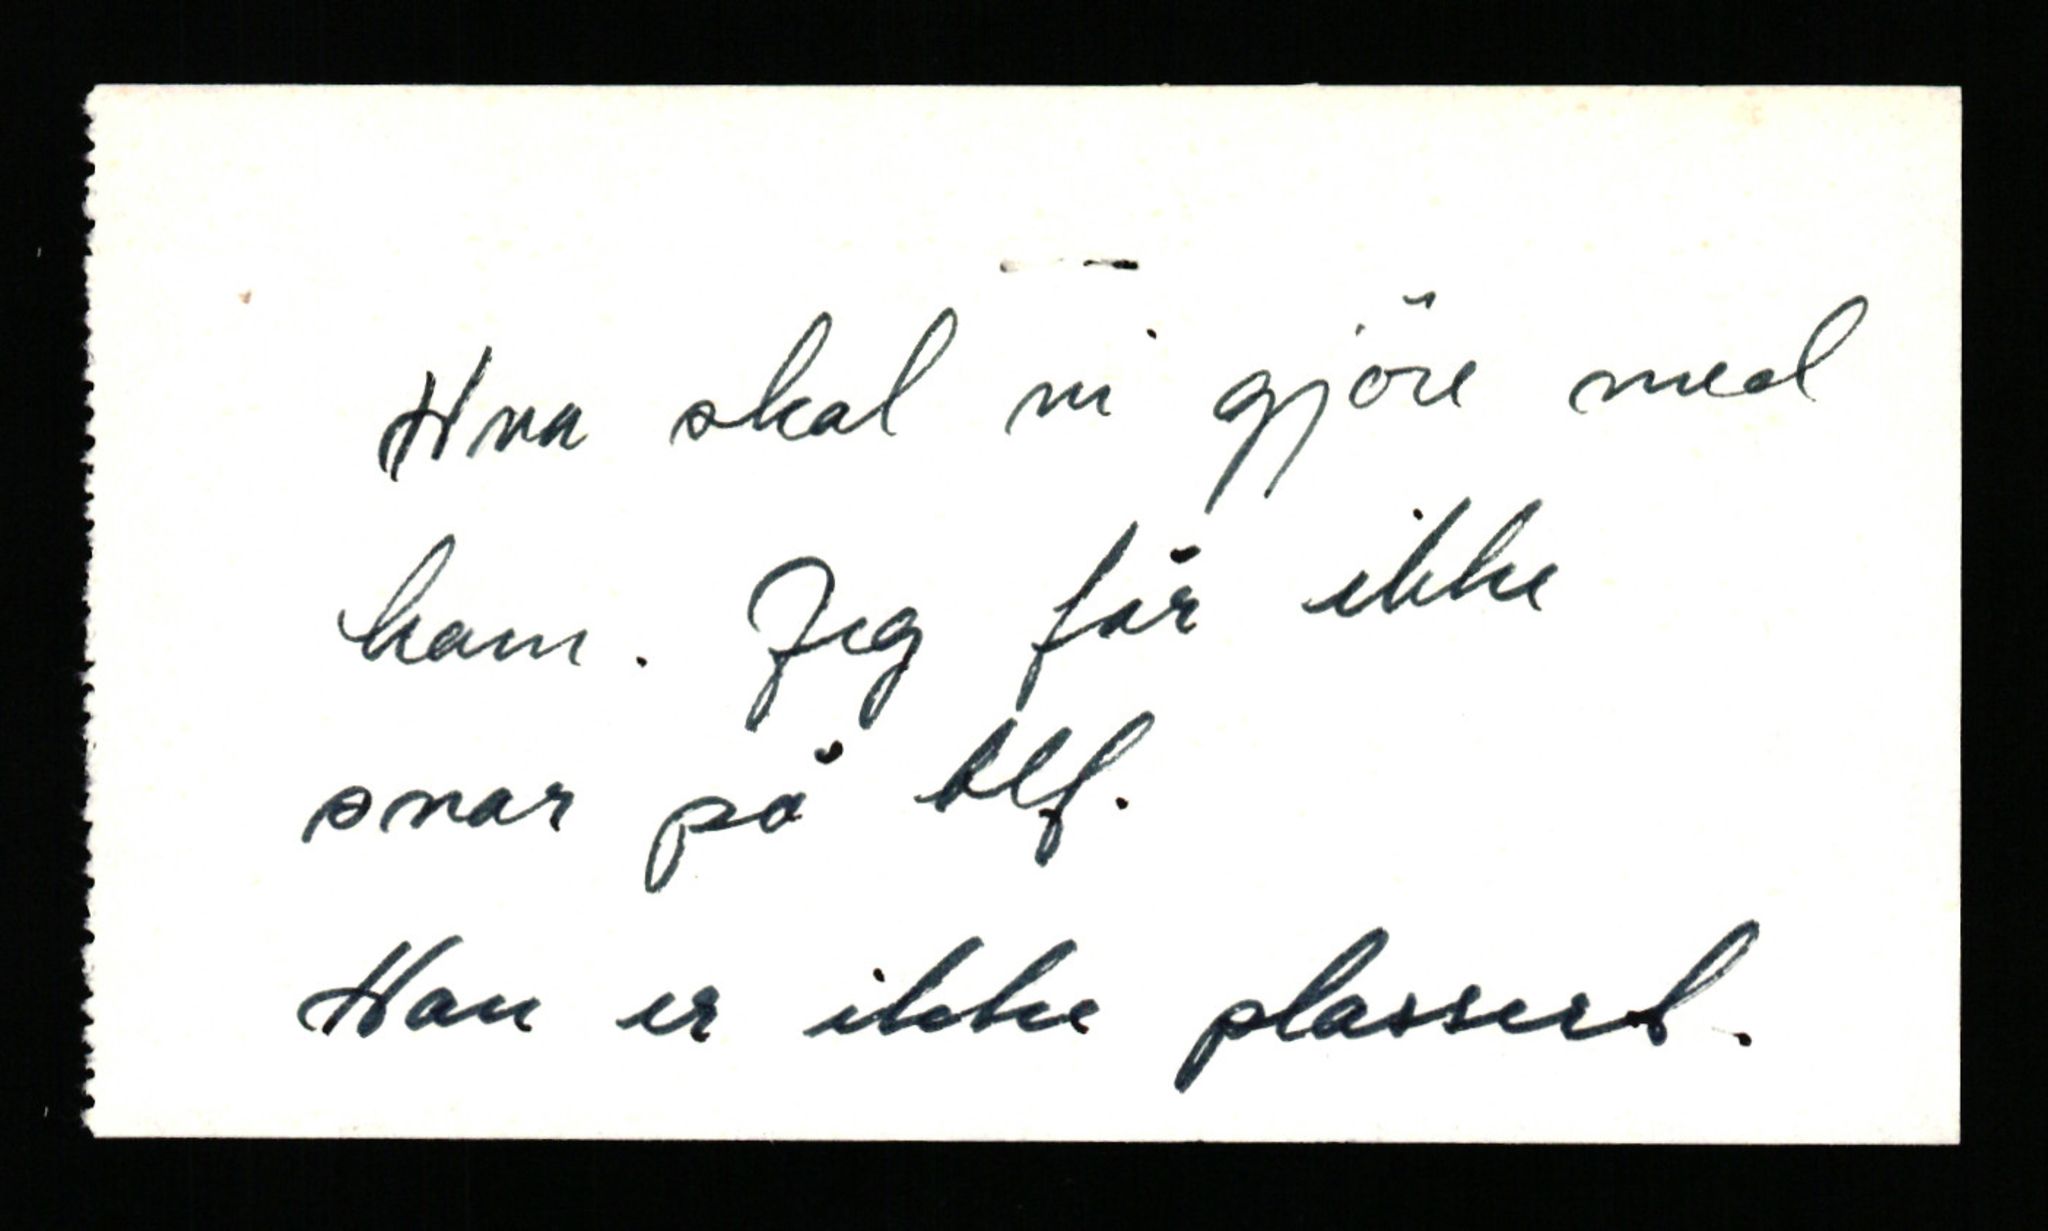 Hva skal vi gjöre med
ham. Jeg får ikke
svar på tlf.
Han er ikke plassert.